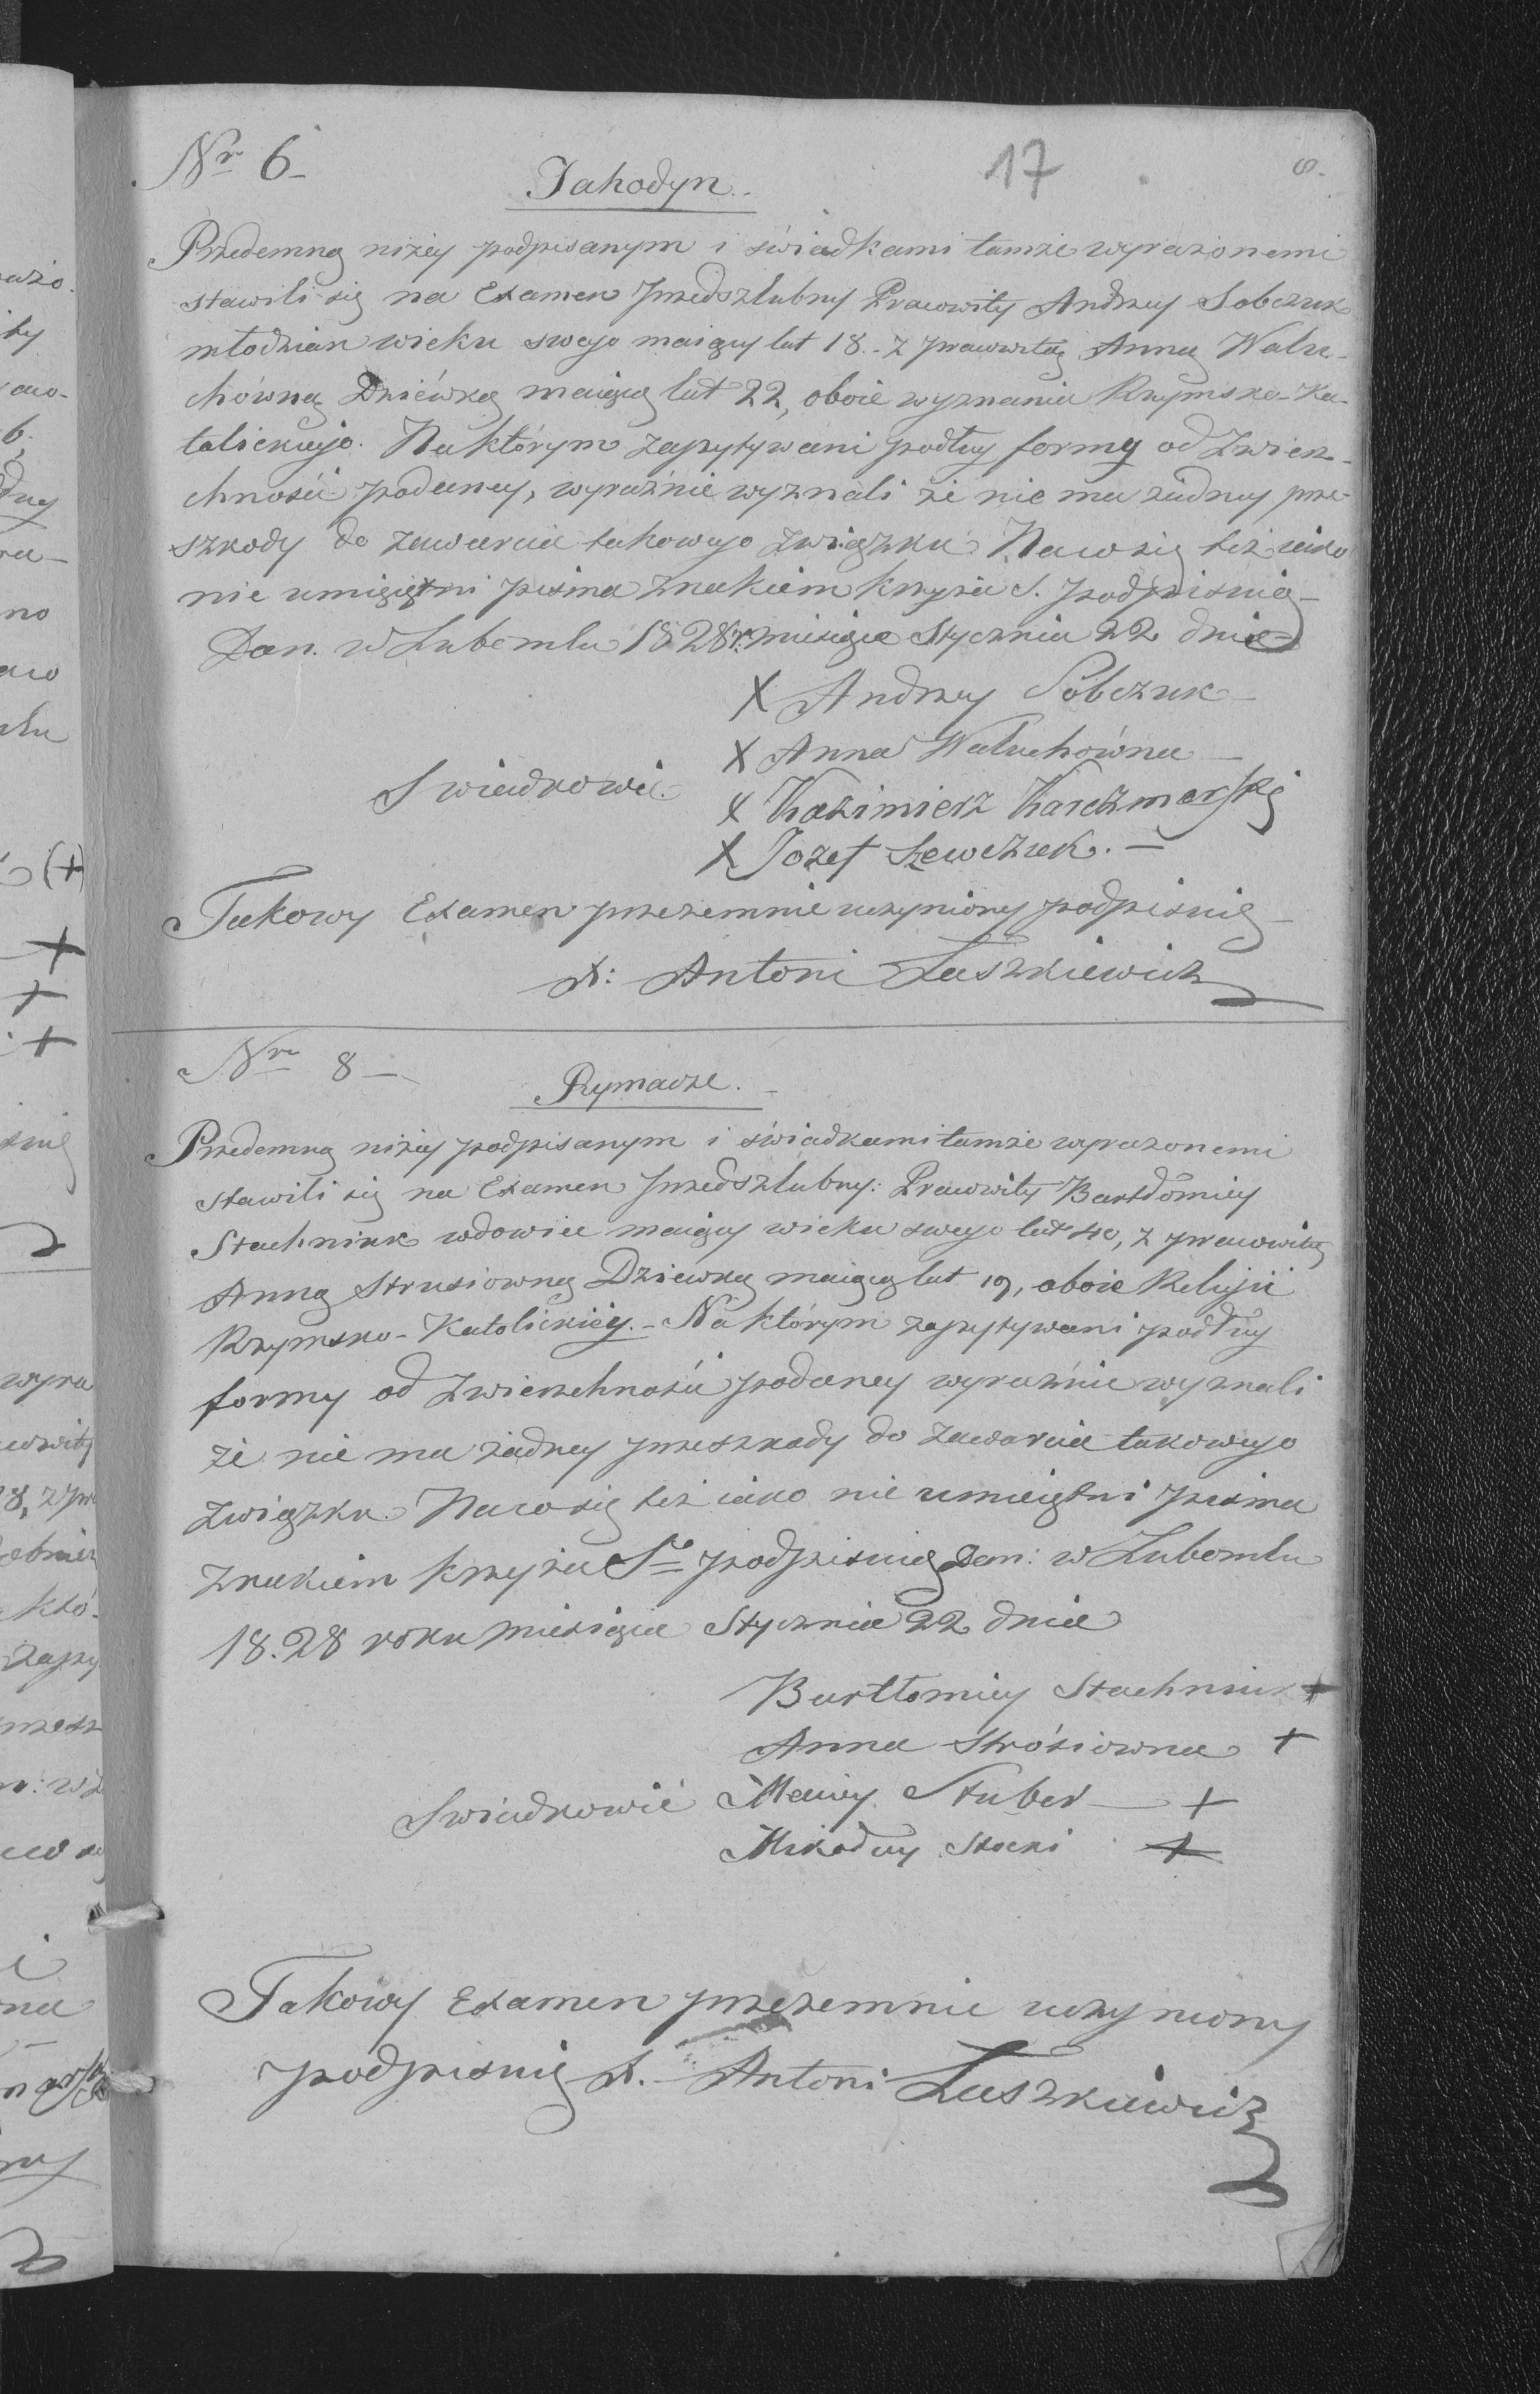 Nr 6
17
8.
Jahodyn.
Przedemną niżey podpisanym i świadkami tamże wyrażonemi
stawili się na Examen przedszlubny Pracowity Andrzey Sobczuk
młodzian wieku swego maiący lat 18.- z pracowitą Anną Walu-
chówną Dziéwką maiącą lat 22, oboie wyznania Rzymsko-Ka-
tolickiego. Na którym zapytywani podług formy od zwierz-
chności podaney, wyraźnie wyznali że nie ma żadney prze-
szkody do zawarcia takowego związku. Na co się też iako
nie umieiętni pisma znakiem krzyża S. podpisuią
Dan. w Lubomlu 1828 r. miesiąca Stycznia 22 dnia
X Andrzey Sobczuk
X Anna Waluchówna
Swiadkowie. X Kazimierz Karczmarski
X Jozef Szewczuk. —
Takowy Examen przezemnie uczyniony podpisuię
X: Antoni Laszkiewicz
Nr 8 —
Rymacze.
Przedemną niżey podpisanym i świadkami tamże wyrażonemi
stawili się na Examen przedszlubny: Pracowity Bartłomiey
Stachniuk wdowiec maiący wieku swego lat 40, z pracowitą
Anną Strusiowną Dziewką maiącą lat 19, oboie Religii
Rzymsko-Katolickiéy.- Na którym zapytywani podług
formy od zwierzchności podaney wyraźnie wyznali
że nie ma żadney przeszkody do zawarcia takowego
związku. Na co się też iako nie umieiętni pisma
znakiem krzyża Sº podpisuią Dan: w Lubomlu
18.28 roku miesiąca Stycznia 22 dnia
Bartłomiey Stachniuk +
Anna Strósiowna +
Swiadkowie Maciey Stuber — +
Mikołay Stocki +
Takowy Examen przezemnie uczyniony
podpisuię X. Antoni Laszkiewicz